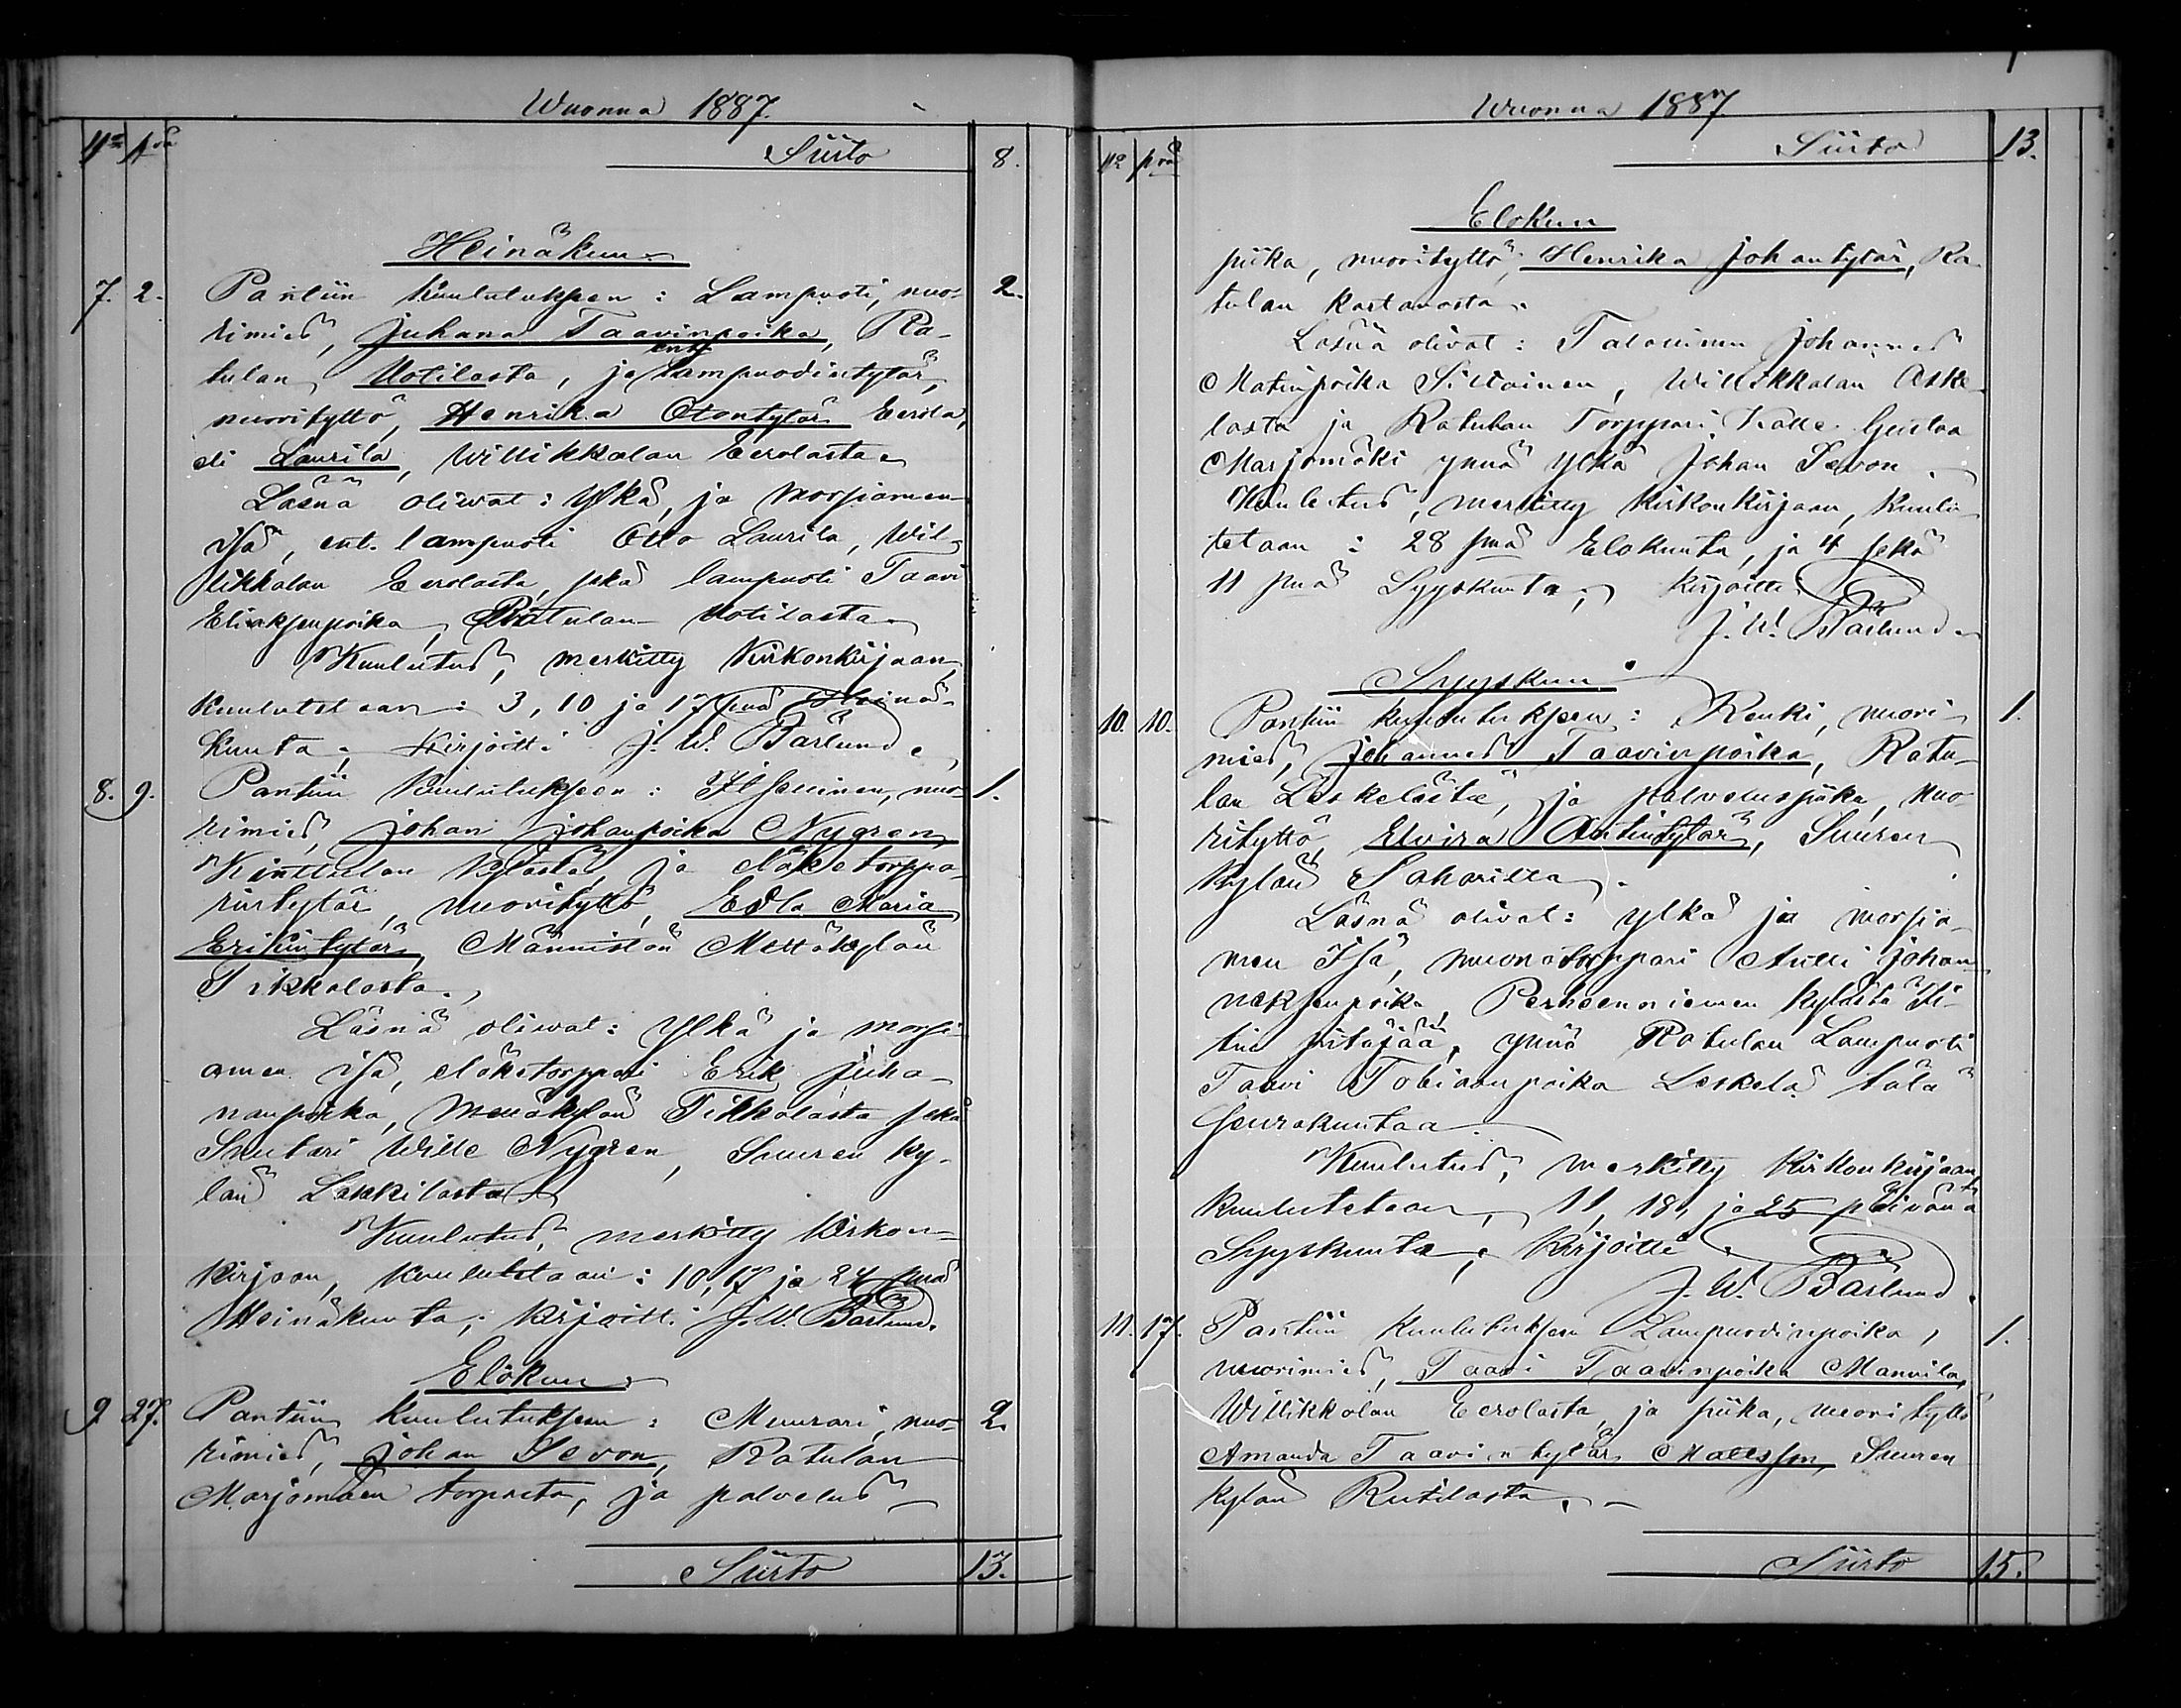 Wuonna 1887.
No pvä Siirto 8.
Heinäkuu.
7. 2. Pantiin kuulutukseen: Lampuoti, nuo- 2.
rimies, Juhana Taavinpoika, Ra-
tulan Uotilasta, ja ent. lampuodintytär,
nuorityttö, Henrika Otontytär Eerola,
eli Laurila, Willikkalan Eerolasta.
Läsnä oliwat: Ylkä, ja morsiamen
isä, ent. lampuoti Otto Laurila, Wil-
likkalan Eerolasta, sekä lampuoti Taavi
Eliaksenpoika, Ratulan Uotilasta.
Kuulutus, merkitty Kirkonkirjaan,
kuulutetaan: 3, 10 ja 17 pnä Heinä-
kuuta; Kirjoitti J. W. Bärlund.
8. 9. Pantiin kuulutukseen: Itsellinen, nuo- 1.
rimies, Johan Johanpoika Nygren,
Kinttulan kylästä, ja eläketorppa-
rintytär, nuorityttö, Edla Maria
Erikintytär, Männistön Mettäkylän
Tikkalasta.
Läsnä oliwat: Ylkä ja morsi-
amen isä, eläketorppari Erik Juha-
nanpoika, Mettäkylän Tikkalasta sekä
Suutari Wille Nygren, Suuren ky-
län Laskilasta.
Kuulutus, merkitty Kirkon-
kirjaan, kuulutetaan: 10, 17 ja 24 pnä
Heinäkuuta; kirjoitti J. W. Bärlund.
Elokuu.
9 27. Pantiin kuulutukseen: Muurari, nuo- 2.
rimies, Johan Sevon, Ratulan
Marjomäen torpasta, ja palvelus-
Siirto 13.
Wuonna 1887
No pvä Siirto 13.
Elokuu
piika, nuorityttö, Henrika Johantytär, Ra-
tulan kartanosta.
Läsnä olivat: Talollinen Johannes
Matinpoika Sillainen, Willikkalan Aske-
lasta ja Ratulan Torppari Kalle Gustaa
Marjomäki ynnä ylkä Johan Sevon.
Kuulutus, merkitty kirkonkirjaan, kuulu-
tetaan: 28 pnä Elokuuta, ja 4 sekä
11 pnä Syyskuuta; kirjoitti
J. W. Bärlund.
Syyskuu.
10. 10. Pantiin kuulutukseen: Renki, nuori- 1.
mies, Johannes Taavinpoika, Ratu-
lan Leskelästä, ja palveluspiika, nuo-
rityttö, Elvira Antintytär, Suuren
kylän Saharilta.
Läsnä olivat: ylkä ja morsia-
men Isä, muonatorppari Antti Johan-
neksenpoika, Perheenniemen kylästä Ii-
tin pitäjää, ynnä Ratulan Lampuoti
Taavi Tobiaanpoika Leskelä tätä
seurakuntaa.
Kuulutus, merkitty kirkonkirjaan,
kuulutetaan, 11, 18, ja 25 päivänä
Syyskuuta; kirjoitti
J. W. Bärlund.
11. 17. Pantiin kuulutukseen Lampuodinpoika, 1.
nuorimies, Taavi Taavinpoika Mannila,
Willikkalan Eerolasta, ja piika, nuorityttö
Amanda Taavintytär Mattsson, Suuren
kylän Rutilasta.
Siirto 15.